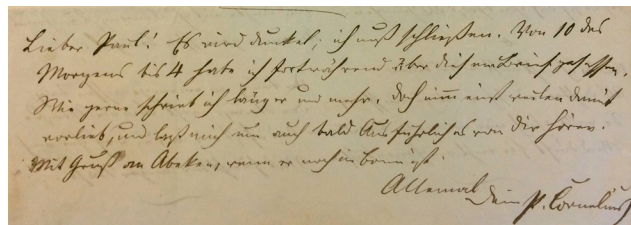 Lieber Paul! Es wird dunkel; ich muß schließen. Von 10 des
Morgens bis 4 habe ich fortwährend über diesem Brief gesessen.
Wie gerne schrieb ich länger und mehr, doch nimm einstweilen damit
vorlieb, und laß mich nun auch bald Ausführliches von Dir hören.
Mit Gruß an Abeken, wenn er noch in Bonn ist.
Allemal Dein P. Cornelius